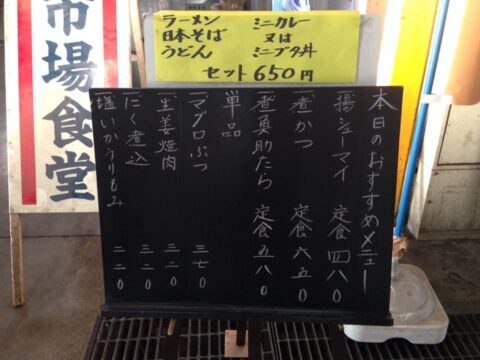 市場食堂
ラーメン
日本そば
うどん
ミニカレー
又は
ミニブタ丼
セット650円
本日のおすすめメニュー
一揚シューマイ 定食 四八〇
一煮かつ 定食 六五〇
一煮魚助たら 定食 五八〇
単品
一マグロぶつ 三七〇
一生姜焼肉 三二〇
一にく煮込 三二〇
一塩いかうりもみ 二二〇